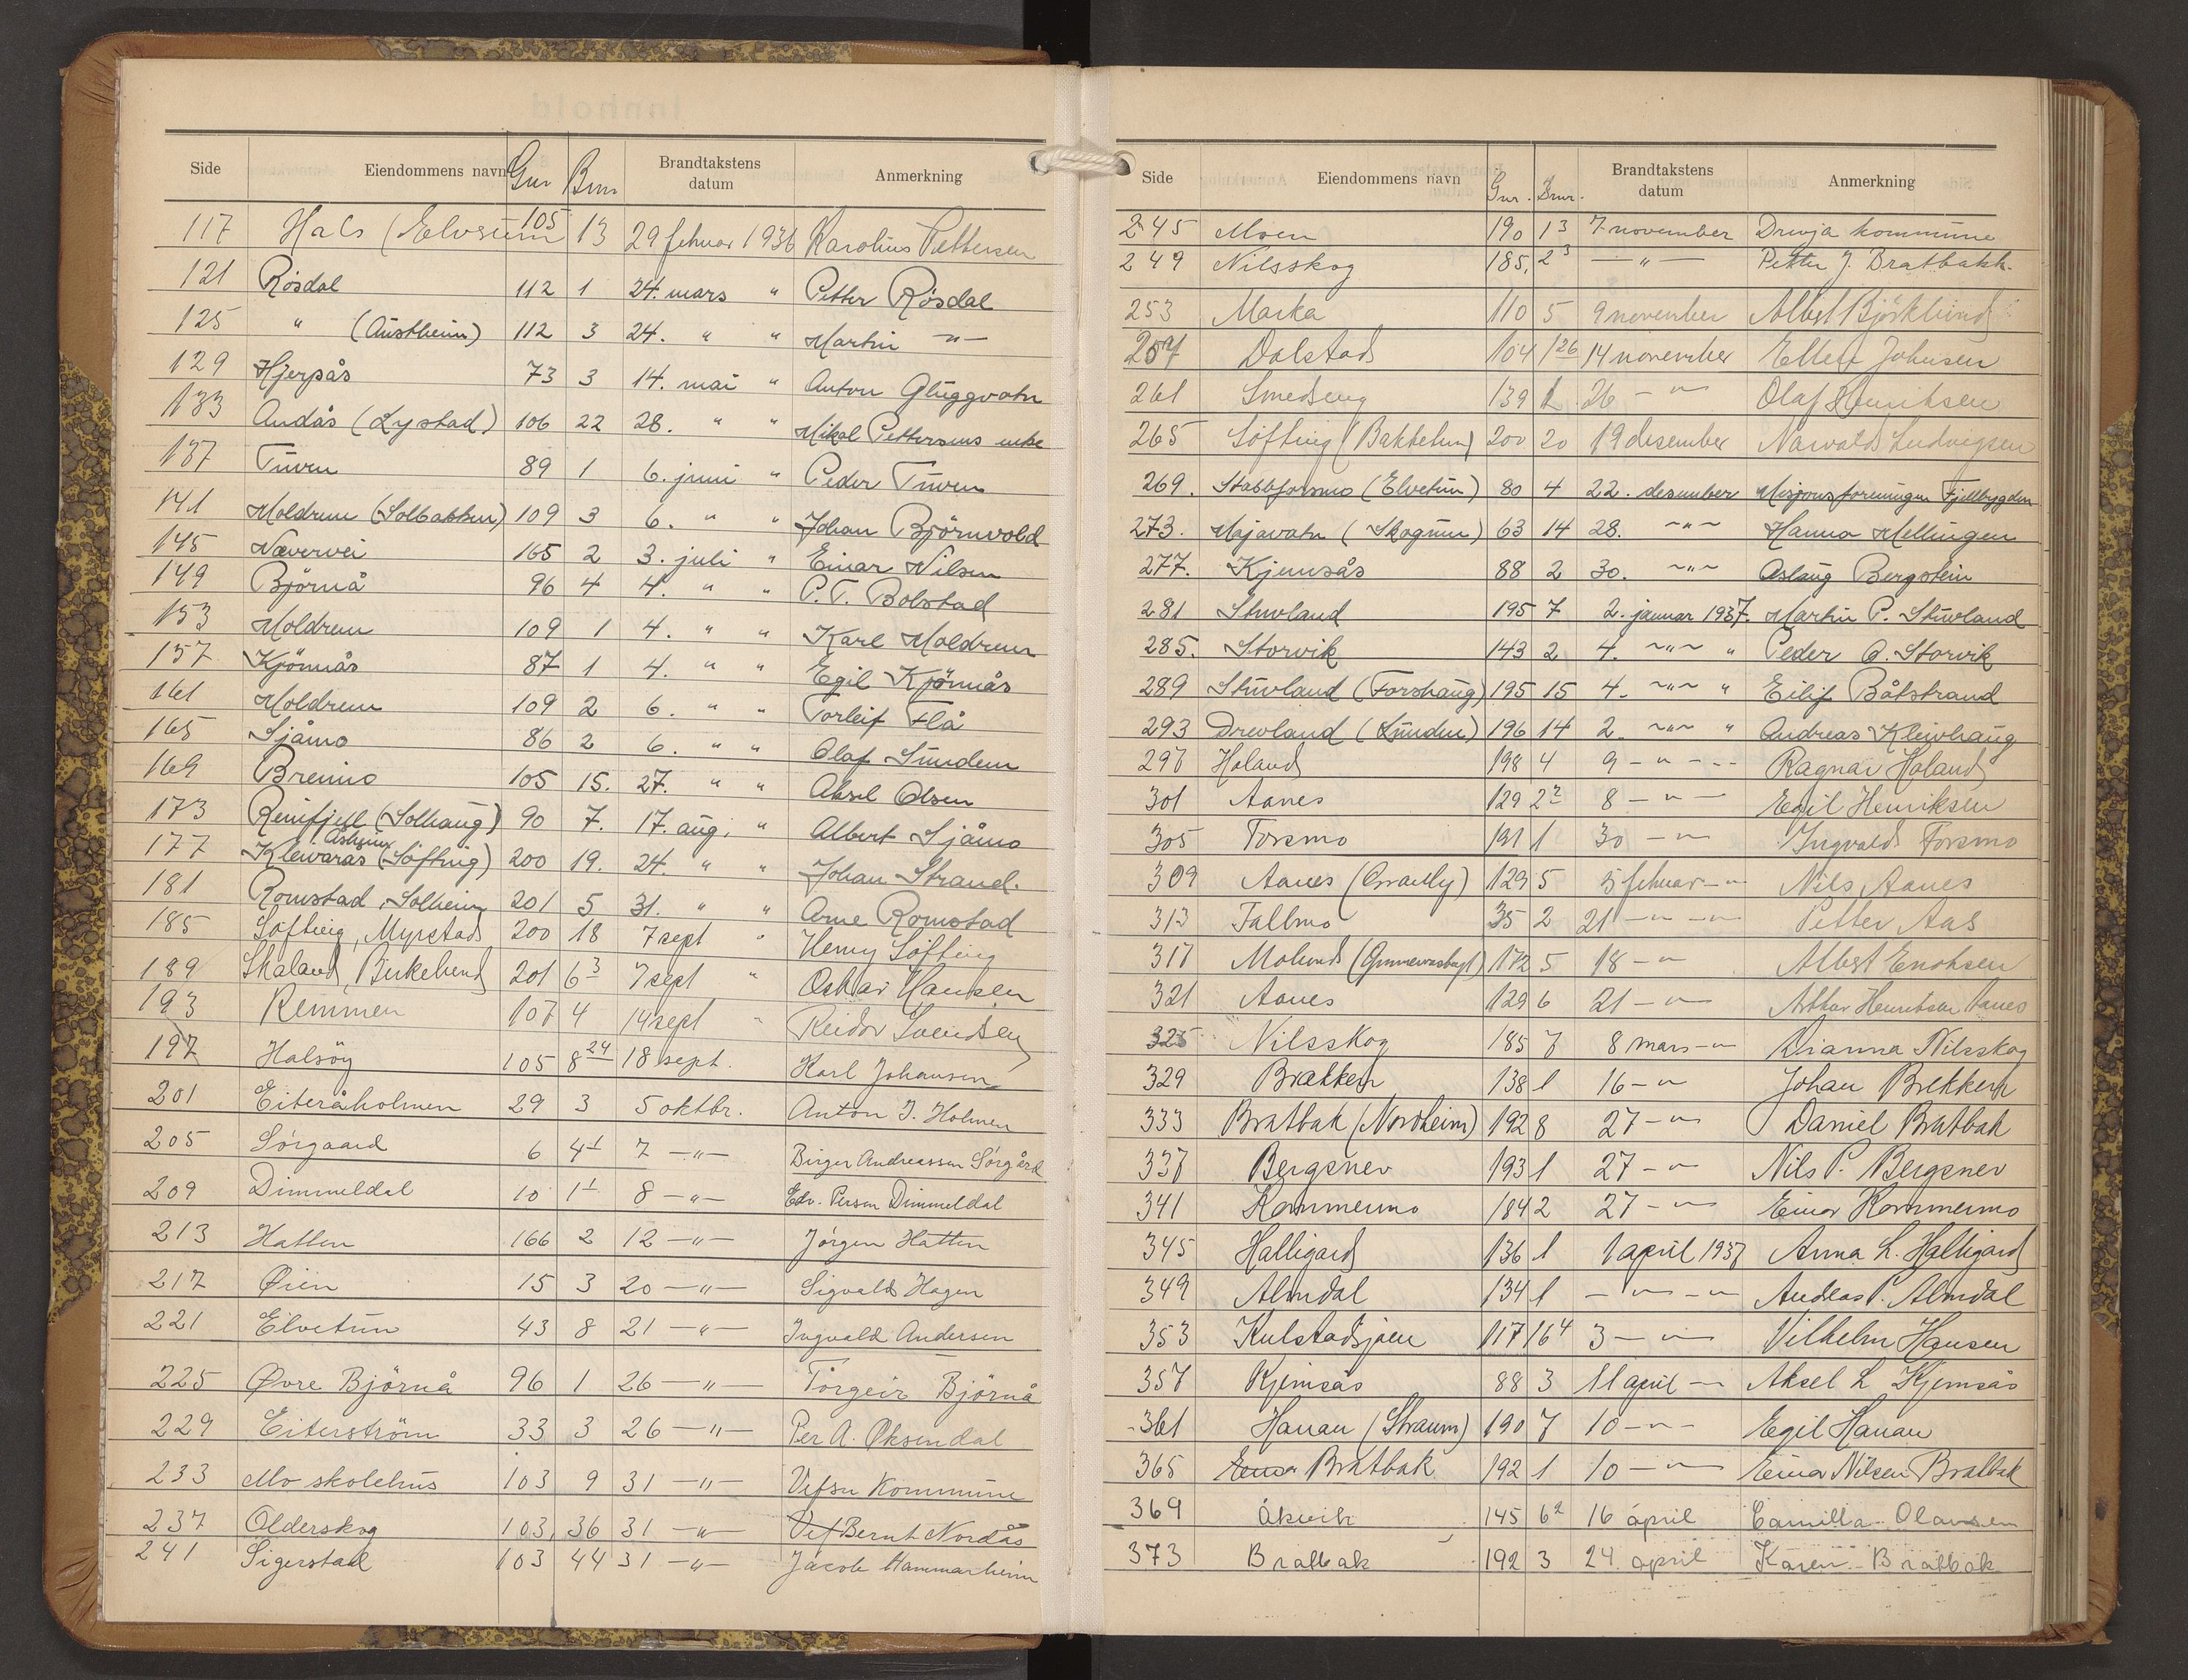 Side Eiendommens navn Gnr Bnr Brandtakstens datum Anmerkning
117 Hals (Elvsum 105 13 29 februar 1936 Karolius Pettersen
121 Rösdal 112 1 24. mars " Petter Rösdal
125 " (Austheim) 112 3 24. " " Martin -"-
129 Hjerpås 73 3 14. mai " Anton Gluggvatn
133 Andås (Lystad) 106 22 28. " " Mikal Pettersens enke
137 Tuven 89 1 6. juni " Peder Tuven
141 Moldrem (Solbakken) 109 3 6. " " Johan Björnvold
145 Nævervei 165 2 3. juli " Einar Nilsen
149 Björnå 96 4 4. " " P.T. Bolstad
153 Moldrem 109 1 4. " " Karl Moldrem
157 Kjönnås 87 1 4. " " Egil Kjönnås
161 Moldrem 109 2 6. " " Torleif Flå
165 Sjåmo 86 2 6. " " Olaf Sundem
169 Breimo 105 15. 27. " " Aksel Olsen
173 Reinfjell (Solhaug) 90 7. 17. aug. " Albert Sjåmo
177 Klevarås (Söfting) Åsheim 200 19. 24. " " Johan Strand.
181 Romstad, Solheim 201 5 31. " " Arne Romstad
185 Söfting, Myrstad 200 18 7 sept " Henry Söfting
189 Skaland, Birkelund 201 6 3 7 sept " Oskar Hansen
193 Remmen 107 4 14 sept " Reidar Svendsen
197 Halsöy 105 8 24 18 sept. Karl Johansen
201 Eiteråholmen 29 3 5 oktbr. Anton J. Holmen
205 Sörgaard 6 4 1 7 -"- Birger Andreassen Sörgård
209 Dimmeldal 10 1 1 8 -"- Edv. Persen Dimmeldal
213 Hatten 166 2 12 -"- Jörgen Hatten
217 Øien 15 3 20 -"- Sigvald Hagen
221 Elvetun 43 8 21 -"- Ingvald Andersen
225 Øvre Björnå 96 1 26 -"- Torgeir Björnå
229 Eiterström 33 3 26 -"- Per A. Øksendal
233 Mo skolehus 103 9 31 -"- Vefsn Kommune
237 Olderskog 103 36 31 -"- Vef Bernt Nordås
241 Sigerstad 103 44 31 -"- Jacob Hammarheim
Side Eiendommens navn Gnr. Bnr. Brandtakstens datum Anmerkning
245 Moen 190 13 7 november Drevja kommune
249 Nilsskog 185, 2 3 -"- Petter J. Bratbakk.
253 Marka 110 5 9 november Albert Björklund
257 Dolstad 104 126 14 november Ellen Johnsen
261 Smedseng 139 1 26 -"- Olaf Henriksen
265 Söfting (Bakketun) 200 20 19 desember Narvald Ludvigsen
269. Stabbforsmo (Elvetun) 80 4 22. desember Misjonsforeningen Fjellbygden
273. Majavatn (Skogtun) 63 14 28. -"- Hanna Mellingen
277. Kjemsås 88 2 30. -"- Aslaug Bergstein
281 Stuvland 195 7 2. januar 1937. Martin P. Stuvland
285. Storvik 143 2 4. -"- " Peder O. Storvik
289 Stuvland (Forshaug) 195 15 4. -"- " Eilif Båtstrand
293 Drevland (Lunden) 196 14 2. -"- " Andreas Kleivhaug
297 Holand 198 4 9 -"- Ragnar Holand
301 Aanes 129 2 2 8 -"- Egil Henriksen
305 Forsmo 191 1 30 -"- Ingvald Forsmo
309 Aanes 129 5 5 februar -"- Nils Aanes
313 Fallmo 35 2 21 -"- Petter Aas
317 172 5 18 -"- Albert Enoksen
321 Aanes 129 6 21 -"- Arthur Henriksen Aanes
325 Nilsskog 185 7 8 mars -"- Dianna Nilsskog
329 Brækken 138 1 16 -"- Johan Brekken
333 Bratbak (Nordheim) 192 8 27 -"- Daniel Bratbak
337 Bergsnev 193 1 27 -"- Nils P. Bergsnev
341 Kommermo 184 2 27 -"- Einar Kommermo
345 Halligard 136 1 1 april 1937 Anna L. Halligard
349 Almdal 134 1 -"- -"- Andreas P. Almdal
353 Kulstadsjøen 117 16 4 3 -"- Vilhelm Hansen
357 Kjemsås 88 3 11 april -"- Aksel L Kjemsås
361 Hanan (Straum) 190 7 10 -"- Egil Hanan
365 Einar Bratbak 192 1 10 -"- Einar Nilsen Bratbak
369 Åkvik 145 6 2 16 april Camilla Olaussen
373 Bratbak 192 3 24. april Karen Bratbak